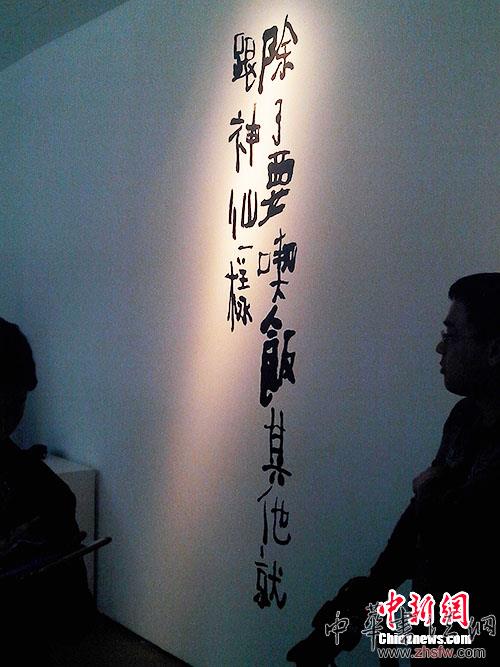 除了要喫飯其他就
跟神仙一樣
中新網
Chinanews.com
中華書法網
www.zhsfw.com